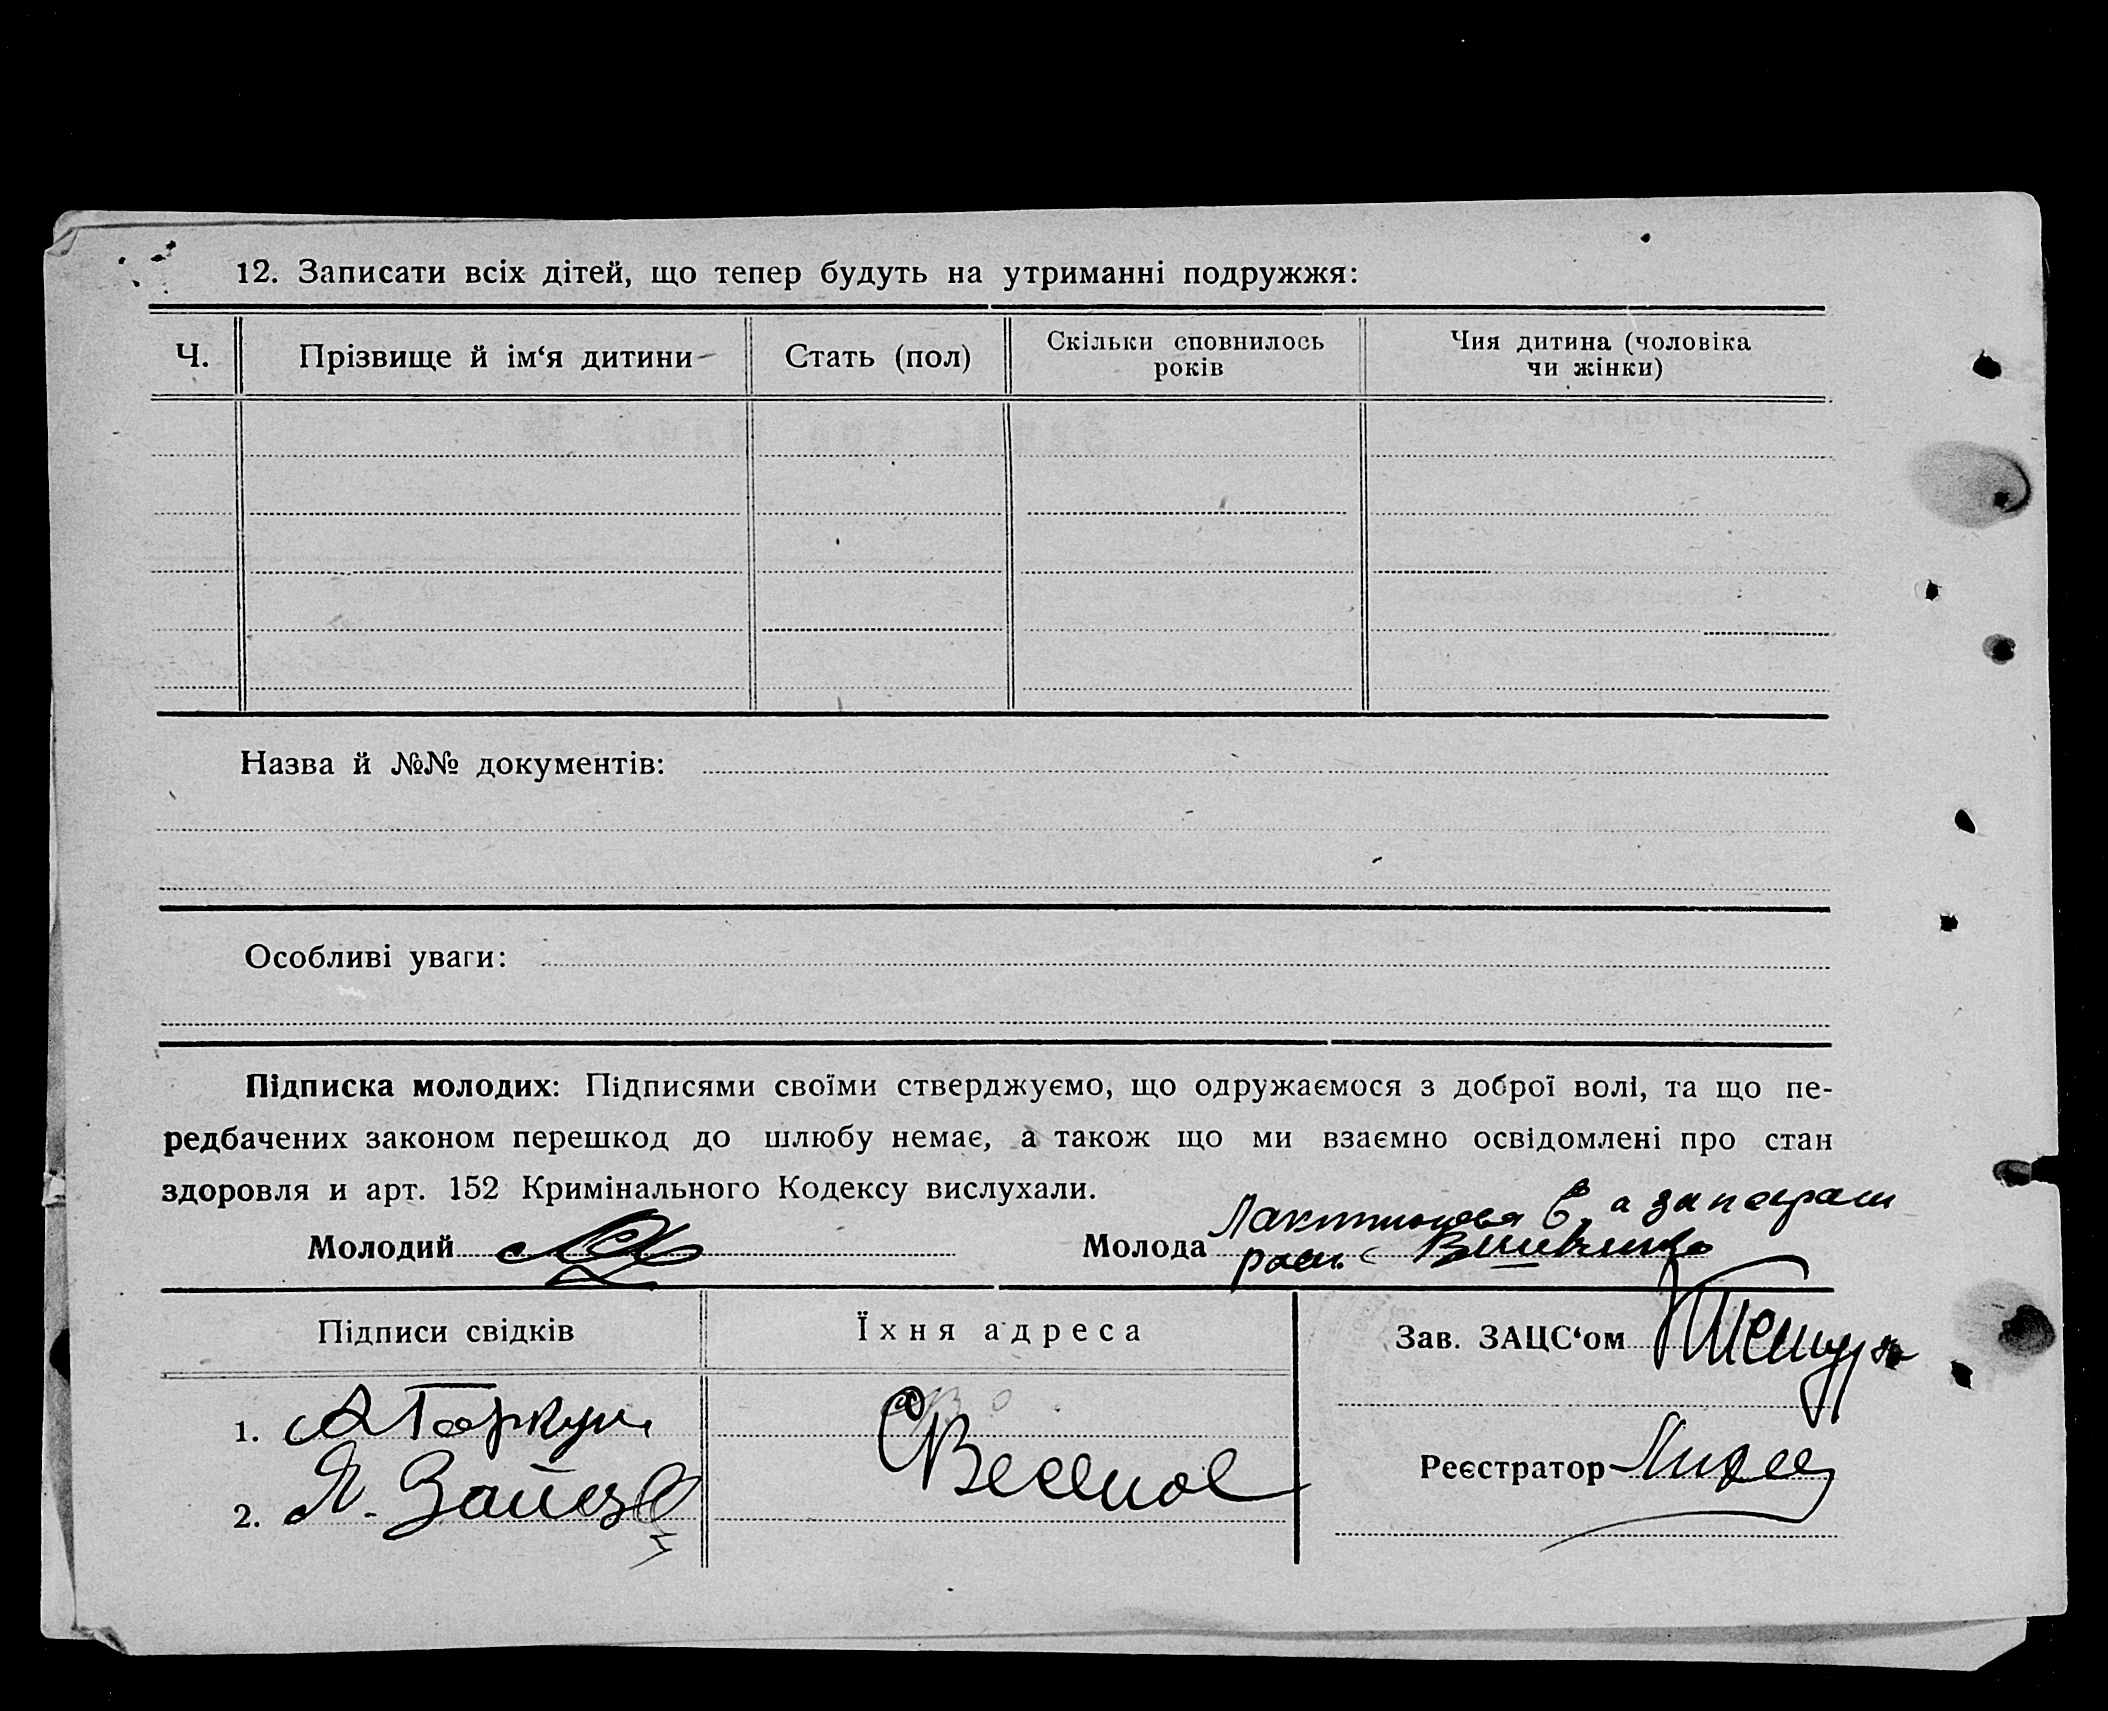 12. Записати всіх дітей, що тепер будуть на утриманні подружжя:
Ч. Прізвище й ім‘я дитини Стать (пол) Скільки сповнилось років Чия дитина (чоловіка чи жінки)
Назва й №№ документів:
Особливі уваги:
Підписка молодих: Підписями своїми стверджуємо, що одружаємося з доброї волі, та що пе-
редбачених законом перешкод до шлюбу немає, а також що ми взаємно освідомлені про стан
здоровля и арт. 152 Кримінального Кодексу вислухали.
Молодий Молода
Підписи свідків Їхня адреса Зав. ЗАЦС‘ом
1.
Реєстратор
2. Я.